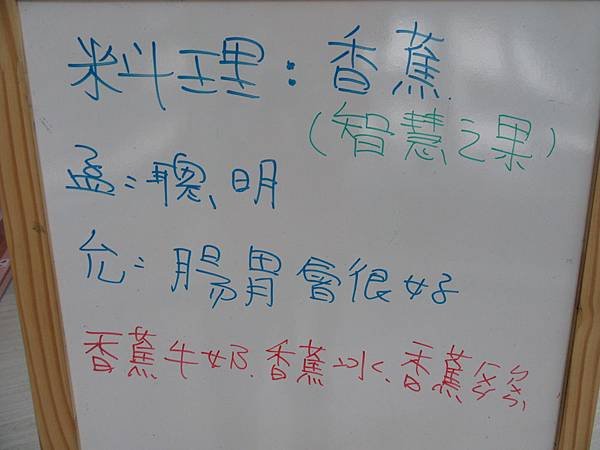 料理:香蕉
(智慧之果)
孟:聰明
允:腸胃會很好
香蕉牛奶.香蕉冰.香蕉